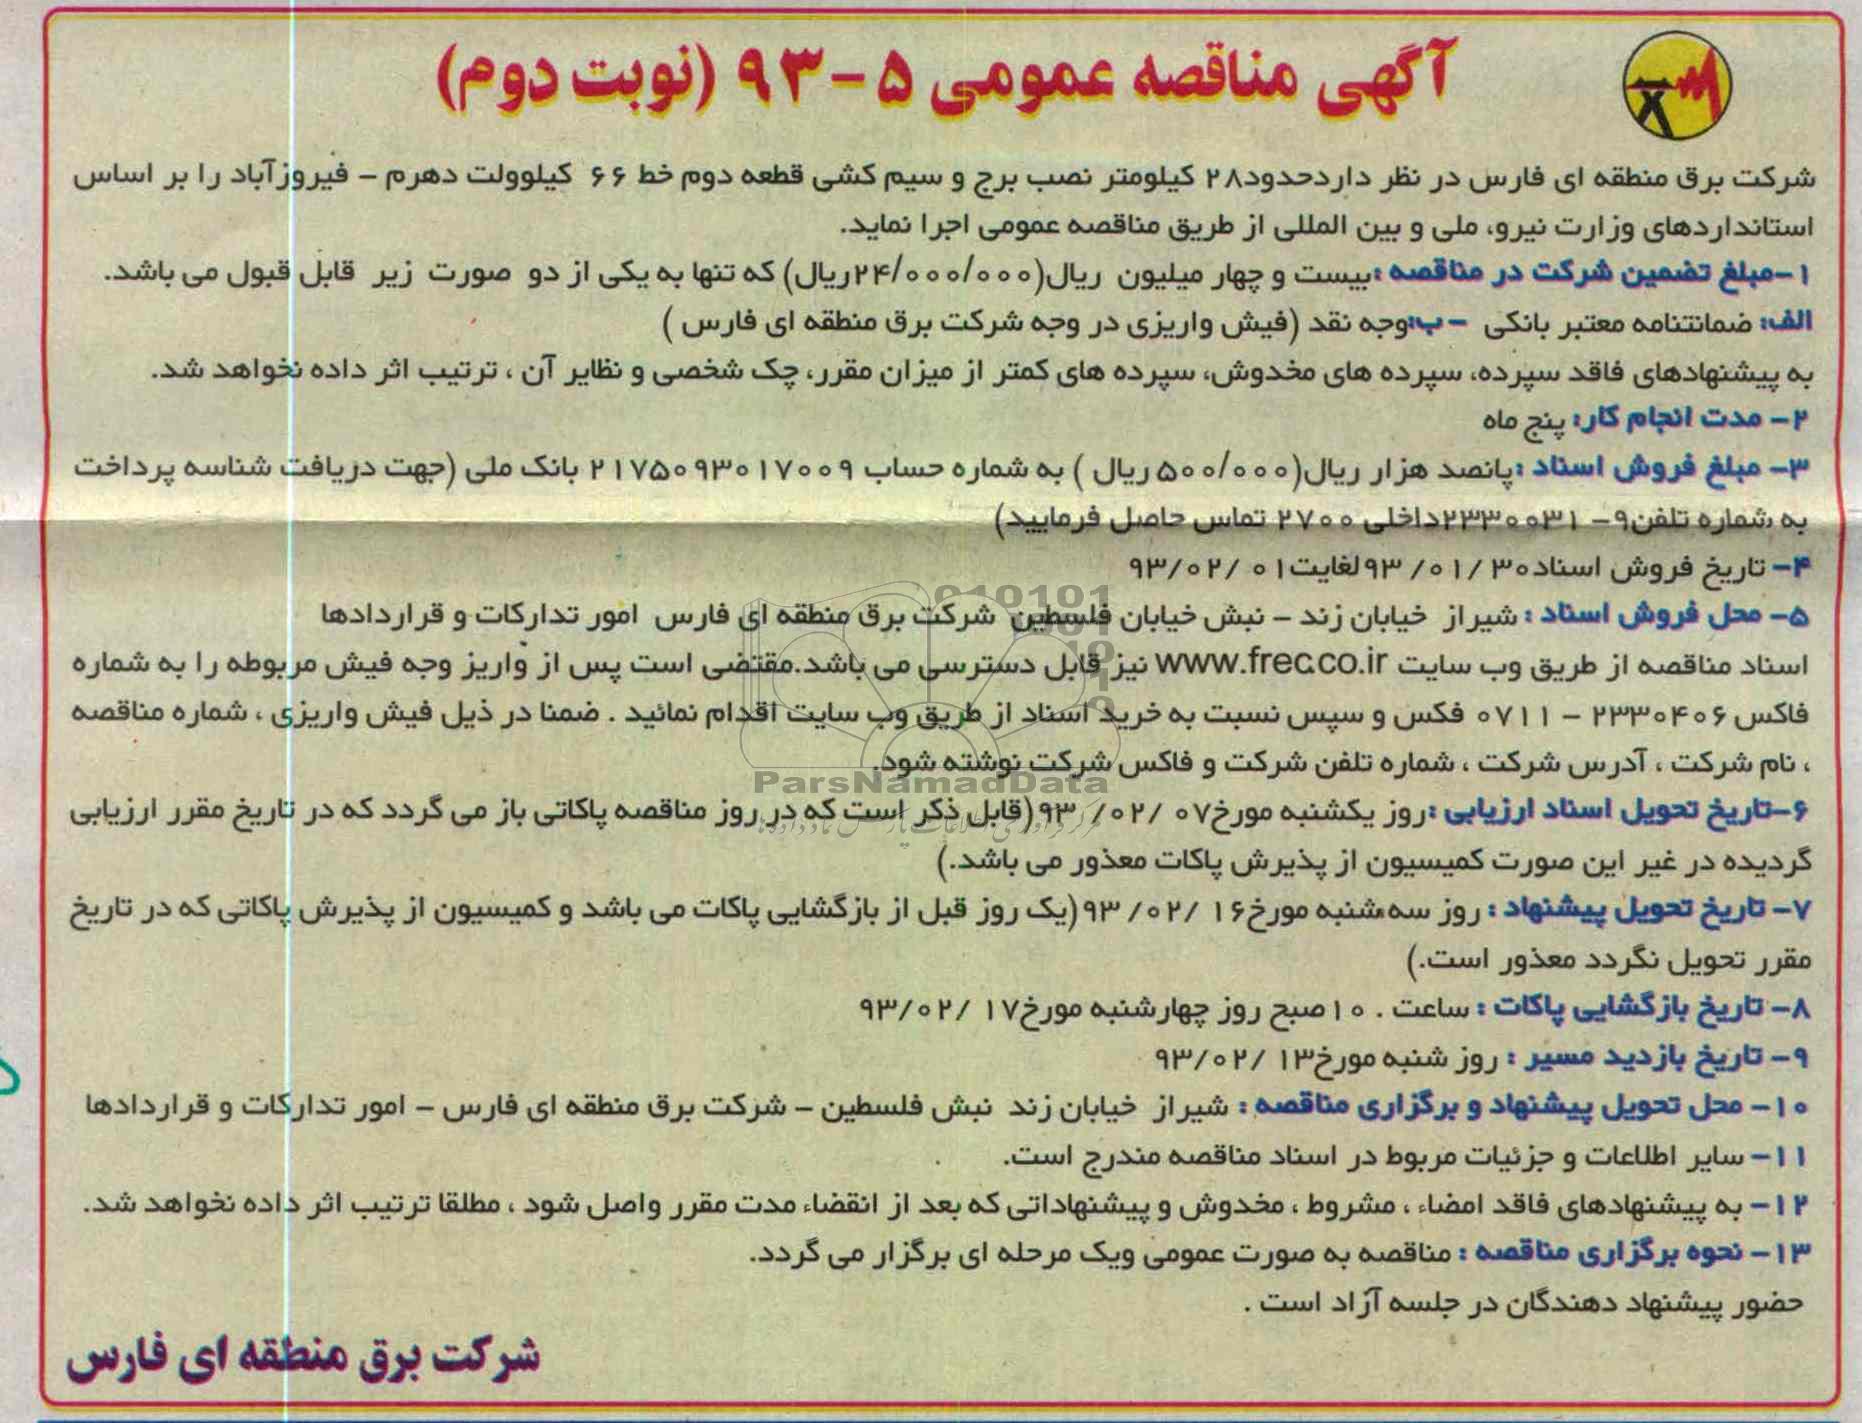 آگهی مناقصه عمومی ۵-۹۳ (نوبت دوم)
شرکت برق منطقه ای فارس در نظر داردحدود۲۸ کیلومتر نصب برج و سیم کشی قطعه دوم خط ۶۶ کیلوولت دهرم - فیروزآباد را بر اساس
استانداردهای وزارت نیرو، ملی و بین المللی از طریق مناقصه عمومی اجرا نماید.
۱-مبلغ تضمین شرکت در مناقصه :بیست و چهار میلیون ریال(۲۴/۰۰۰/۰۰۰ریال) که تنها به یکی از دو صورت زیر قابل قبول می باشد.
الف: ضمانتنامه معتبر بانکی -ب:وجه نقد (فیش واریزی در وجه شرکت برق منطقه ای فارس )
به پیشنهادهای فاقد سپرده، سپرده های مخدوش، سپرده های کمتر از میزان مقرر، چک شخصی و نظایر آن ، ترتیب اثر داده نخواهد شد.
۲- مدت انجام کار: پنج ماه
۳- مبلغ فروش اسناد :پانصد هزار ریال(۵۰۰/۰۰۰ ریال ) به شماره حساب ۲۱۷۵۰۹۳۰۱۷۰۰۹ بانک ملی (جهت دریافت شناسه پرداخت
به شماره تلفن۹- ۲۳۳۰۰۳۱داخلی ۲۷۰۰ تماس حاصل فرمایید)
۴- تاریخ فروش اسناد۳۰ /۰۱ /۹۳لغایت۰۱ /۹۳/۰۲
۵- محل فروش اسناد : شیراز خیابان زند - نبش خیابان فلسطین شرکت برق منطقه ای فارس امور تدارکات و قراردادها
اسناد مناقصه از طریق وب سایت www.frec.co.ir نیز قابل دسترسی می باشد.مقتضی است پس از واریز وجه فیش مربوطه را به شماره
فاکس ۲۳۳۰۴۰۶ - ۰۷۱۱ فکس و سپس نسبت به خرید اسناد از طریق وب سایت اقدام نمائید . ضمنا در ذیل فیش واریزی ، شماره مناقصه
، نام شرکت ، آدرس شرکت ، شماره تلفن شرکت و فاکس شرکت نوشته شود.
ParsNamadData
۶-تاریخ تحویل اسناد ارزیابی :روز یکشنبه مورخ۰۷ /۰۲ /۹۳(قابل ذکر است که در روز مناقصه پاکاتی باز می گردد که در تاریخ مقرر ارزیابی
گردیده در غیر این صورت کمیسیون از پذیرش پاکات معذور می باشد.)
۷- تاریخ تحویل پیشنهاد : روز سه‌شنبه مورخ۱۶ /۰۲ /۹۳(یک روز قبل از بازگشایی پاکات می باشد و کمیسیون از پذیرش پاکاتی که در تاریخ
مقرر تحویل نگردد معذور است.)
۸- تاریخ بازگشایی پاکات : ساعت . ۱۰صبح روز چهارشنبه مورخ۱۷ /۹۳/۰۲
۹- تاریخ بازدید مسیر : روز شنبه مورخ۱۳ /۹۳/۰۲
۱۰- محل تحویل پیشنهاد و برگزاری مناقصه : شیراز خیابان زند نبش فلسطین - شرکت برق منطقه ای فارس - امور تدارکات و قراردادها
۱۱- سایر اطلاعات و جزئیات مربوط در اسناد مناقصه مندرج است.
۱۲- به پیشنهادهای فاقد امضاء ، مشروط ، مخدوش و پیشنهاداتی که بعد از انقضاء مدت مقرر واصل شود ، مطلقا ترتیب اثر داده نخواهد شد.
۱۳- نحوه برگزاری مناقصه : مناقصه به صورت عمومی ویک مرحله ای برگزار می گردد.
حضور پیشنهاد دهندگان در جلسه آزاد است .
شرکت برق منطقه ای فارس